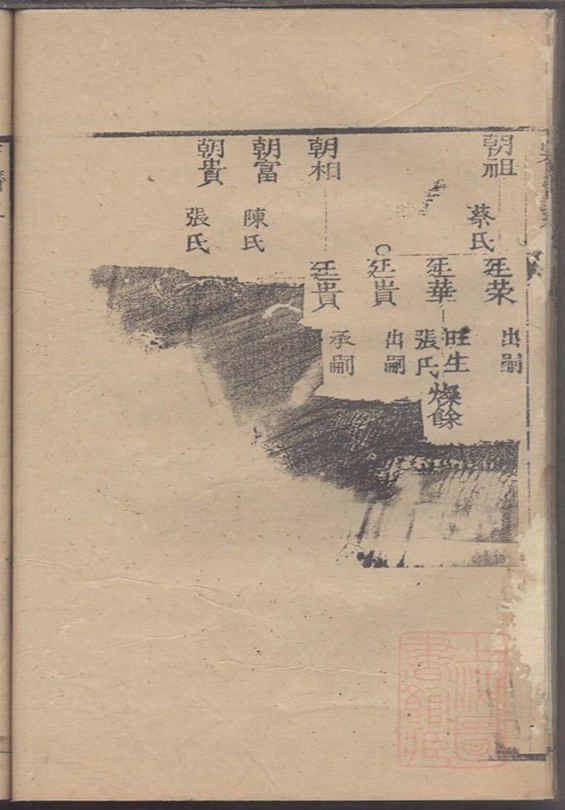 朝祖
蔡氏
廷荣
出嗣
廷華
旺生
張氏
燦餘
廷貴
出嗣
朝相
廷貴
承嗣
朝富
陳氏
朝貴
張氏